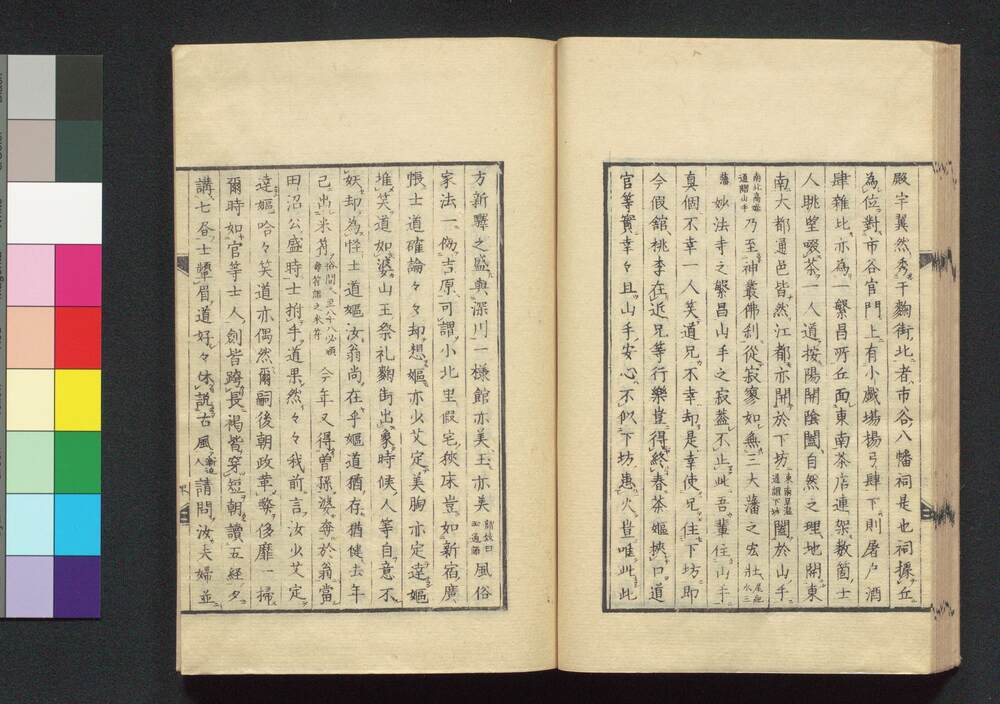 殿宇翼然秀于麴街北者市谷八幡祠是也祠據丘
為位對市谷官門上有小戲場揚弓肆下則屠戶酒
肆雜比亦為一繁昌所丘面東南茶店連架数箇士
人眺望啜茶一人道按陽開陰闔自然之理地開東
南大都通邑皆然江都亦開於下坊東南呉濕通謂下坊闔於山手
南北高燥通謂山手乃至神叢佛刹從寂寥如無三大藩之宏壯尾紀水三
藩妙法寺之繁昌山手之寂蓋不止此吾輩住山手
真個不幸一人笑道兄不幸却是幸使兄住下坊即
今假舘桃李在近兄等行樂豈得終春茶嫗挾口道
官等實幸々且山手安心不似下坊患火豈唯此此
方新驛之盛與深川一樣館亦美玉亦美風俗
家法一傚吉原可謂小北里假宅狹床豈如新宿廣
悵士道確論々々却想嫗亦少艾定美胸亦定達嫗
堆笑道如婆山王祭礼麴街出象時候人等自意不
妖却為怪士道嫗汝翁尚在乎嫗道猶存猶健去年
己出米符俗間人至八十八必頒壽符謂之米符今年又得曽孫婆每於翁當
田沼公盛時士拊手道果然々々我前言汝少艾定
達嫗哈々笑道亦偶然爾嗣後朝政革弊侈靡一掃
爾時如官等士人劍皆跨長褐皆穿短朝讀五經夕
講七吾士顰眉道好々休說古風請問汝夫婦並